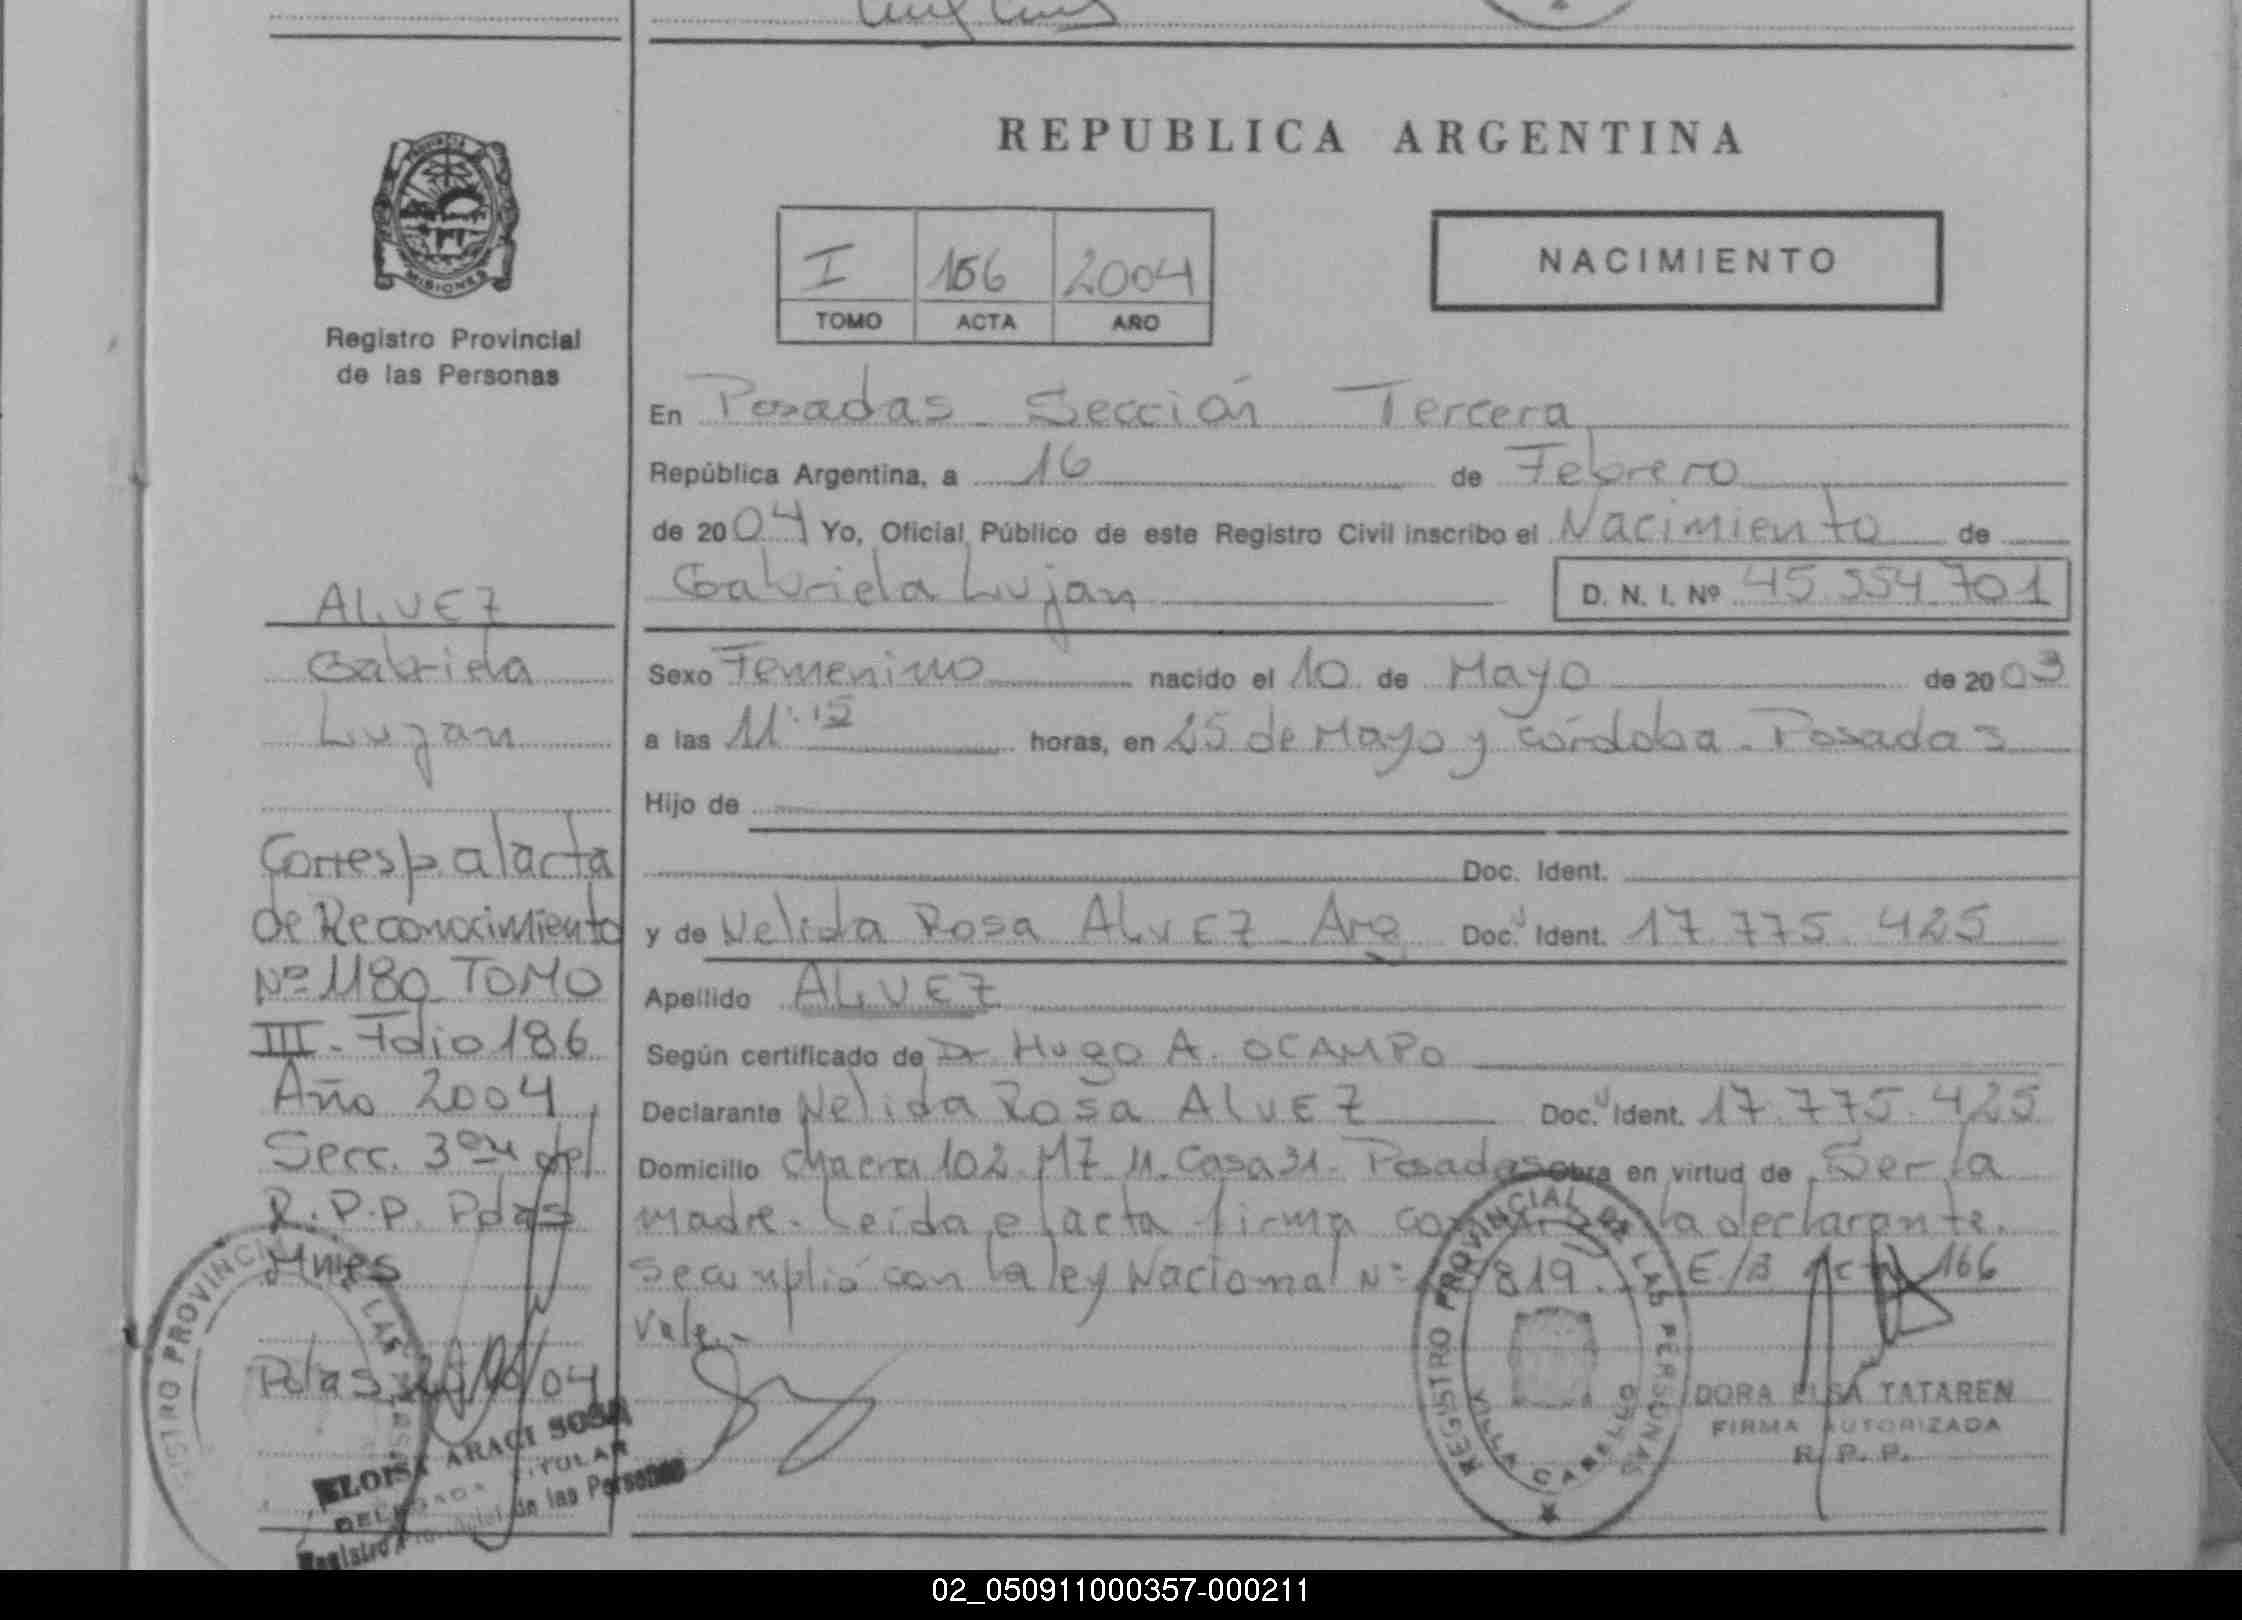 REPUBLICA ARGENTINA
I 166 2004
TOMO ACTA AÑO
NACIMIENTO
MISIONES
Registro Provincial
de las Personas
En Posadas Sección Tercera
República Argentina, a 16 de Febrero
de 2004 Yo, Oficial Público de este Registro Civil inscribo el Nacimiento de
Gabriela Lujan D. N. I. Nº 45.354.701
Sexo Femenino nacido el 10 de Mayo de 2003
a las 11:15 horas, en 25 de Mayo y Córdoba - Posadas
Hijo de
Doc. Ident.
y de Nelida Rosa ALVEZ Arg Doc. Ident. 17.775.425
Apellido ALVEZ
Según certificado de Dr Hugo A. OCAMPO
Declarante Nelida Rosa ALVEZ Doc. Ident. 17.775.425
Domicilio Chacra 102 MZ 11 Casa 31 - Posadas Obra en virtud de Ser la
madre. Leida el acta firma la declarante.
Se cumplió con la ley Nacional Nº 819. E/B acta 166
Vale.-
ALVEZ
Gabriela
Lujan
Corresp. al acta
de Reconocimiento
Nº 1180 TOMO
III - Folio 186
Año 2004
Secc. 3era del
R.P.P. Pdas
Mnes
Pdas 04
REGISTRO PROVINCIAL DE LAS PERSONAS
ELOISA ARACI SOSA
DELEGADA TITULAR
Registro Provincial de las Personas
REGISTRO PROVINCIAL DE LAS PERSONAS
VILLA CABELLO
DORA ELSA TATAREN
FIRMA AUTORIZADA
R. P. P.
02_050911000357-000211